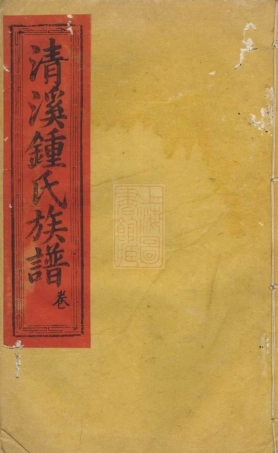 清溪鍾氏族譜
卷
上海圖書館藏